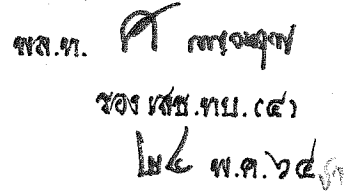 พล.ท. ศ
รอง เสธ.ทบ.(๔)
๒๔ พ.ค. ๖๔